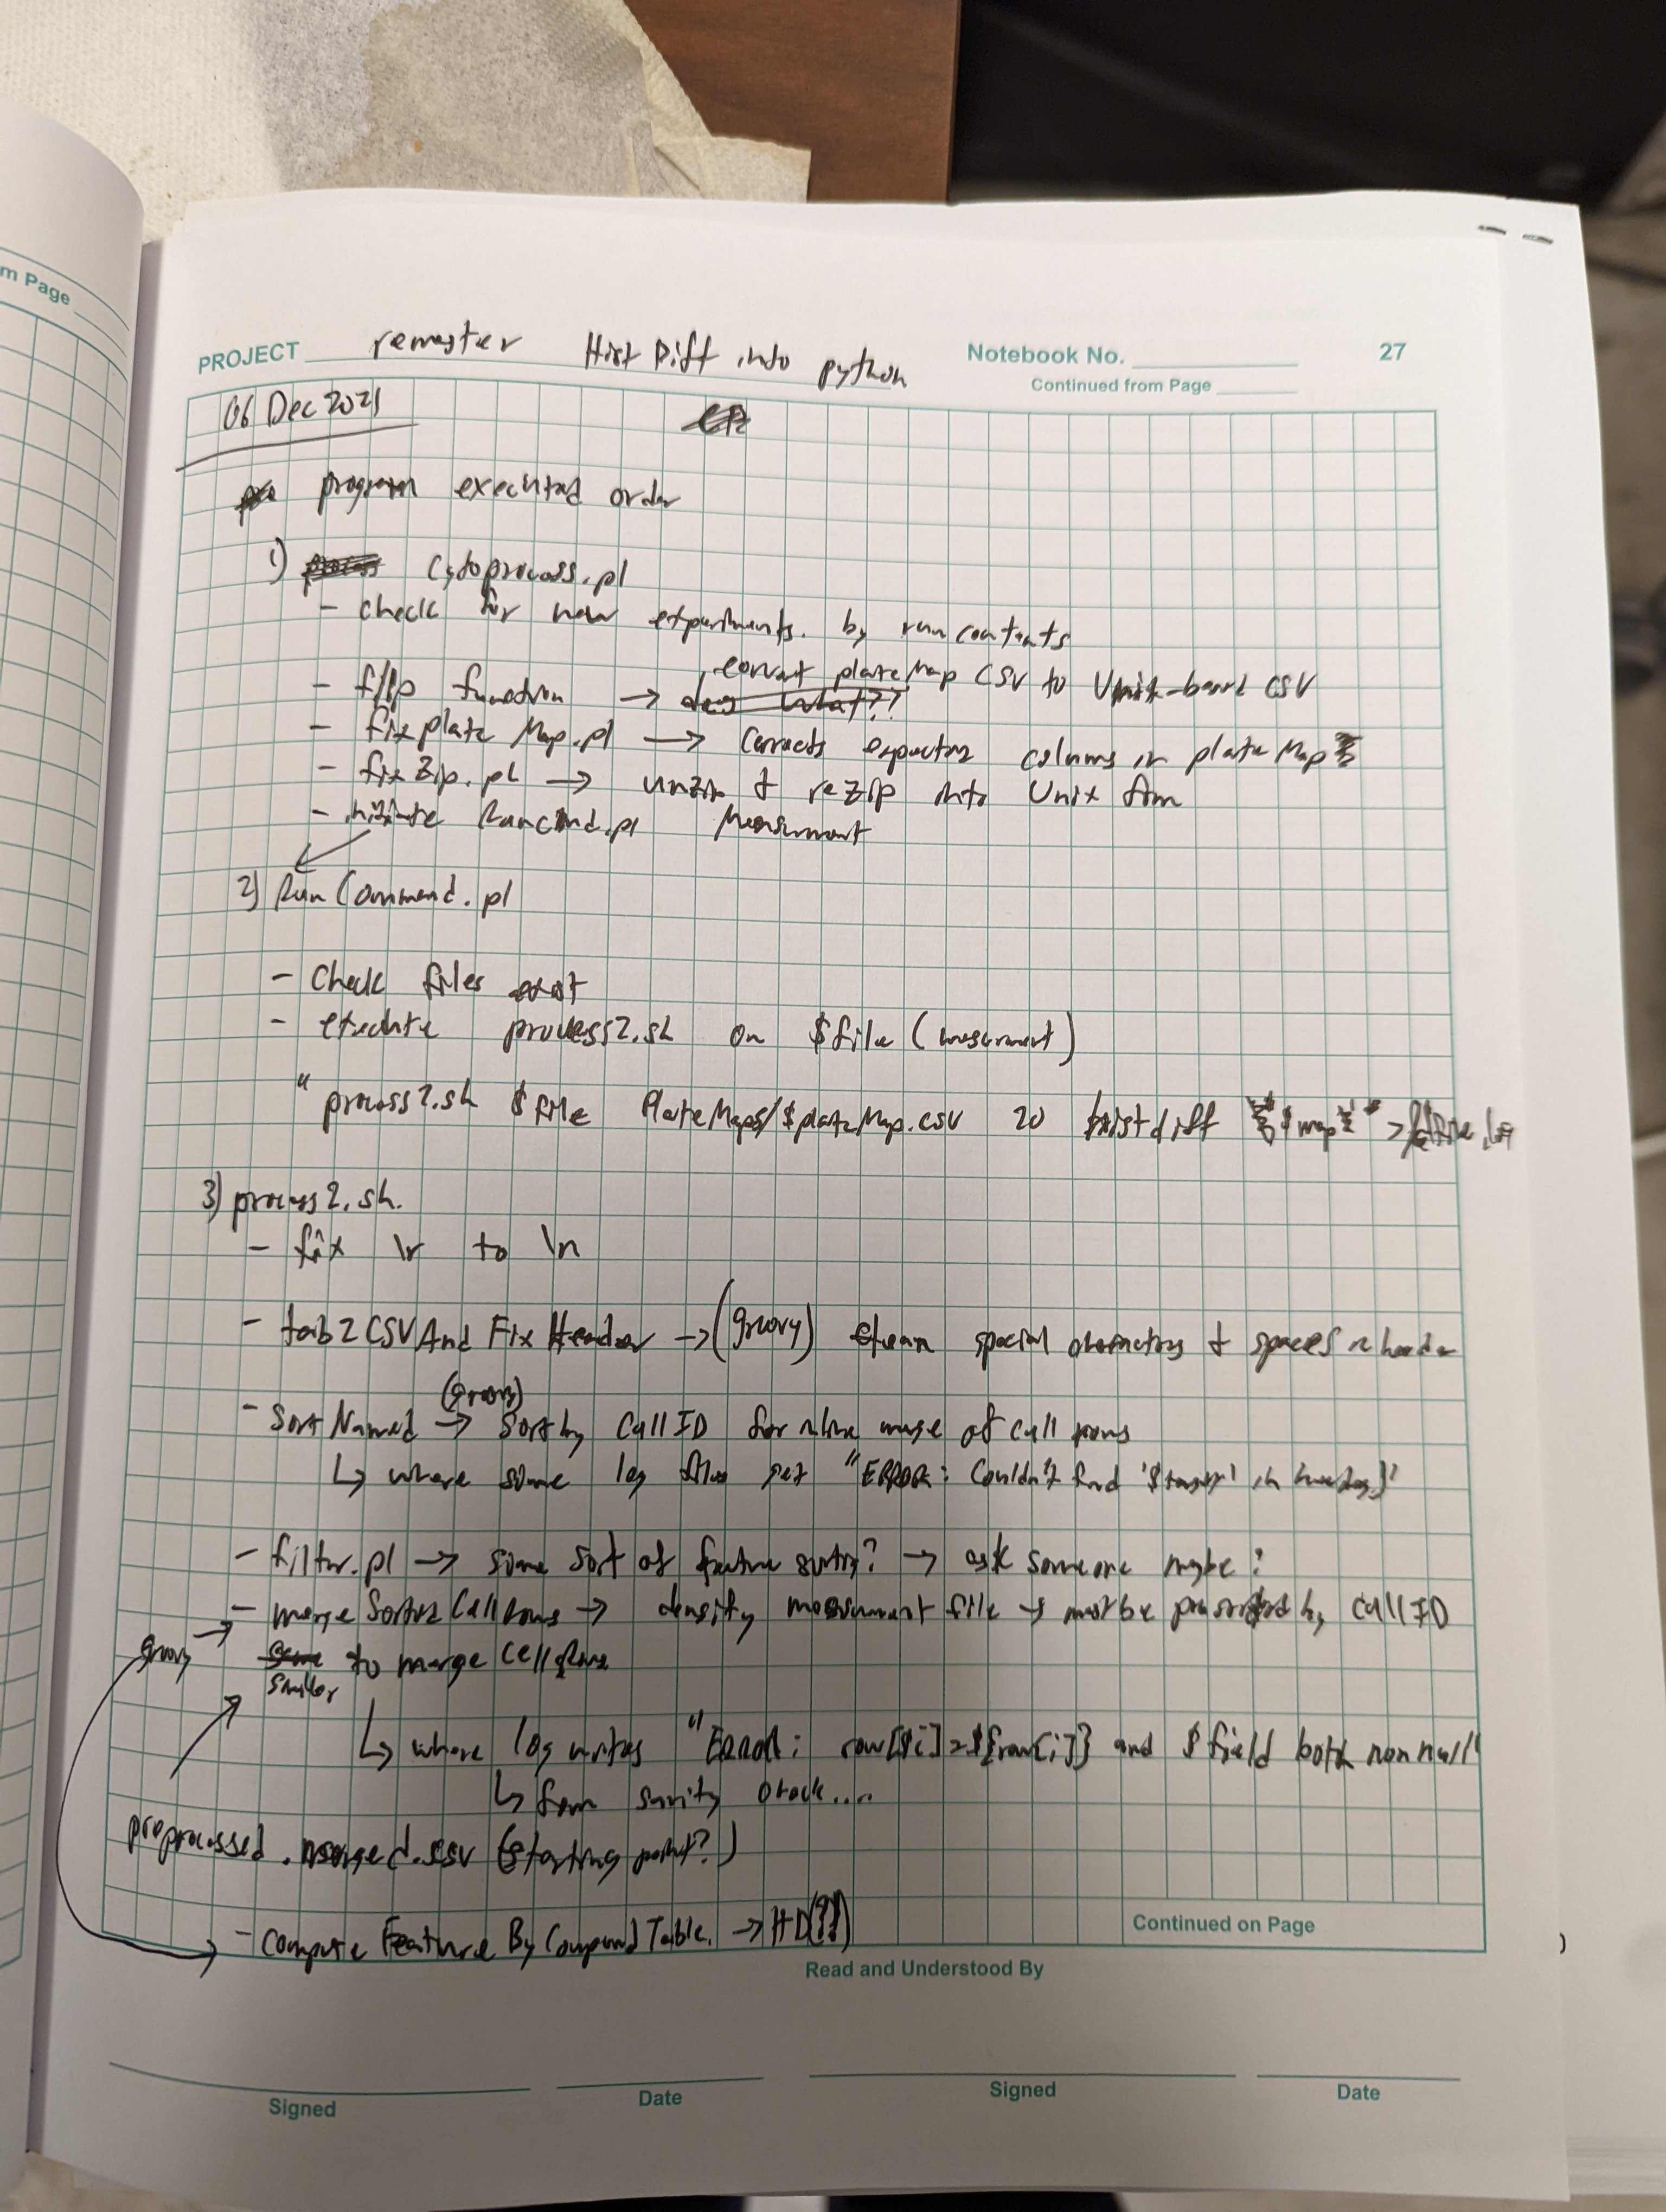 m Page
PROJECT remaster Hist Diff into python Notebook No. 27
Continued from Page
06 Dec 2021
program executed order
1) Cytoprocess.pl
- check for new experiments. by run contents
- flip function → convert plateMap CSV to Unix-based CSV
- fixplate Map.pl → corrects expector columns in plateMap
- fixZip.pl → unzip & rezip into Unix form
- initiate RunCmd.pl Measurement
2) Run Command.pl
- Check files exist
- execute process2.sh on $file (measurment)
"process2.sh $file PlateMaps/$plateMap.csv 20 histdiff $map" > $file.log
3) process2.sh.
- fix \r to \n
- tab2CSVAndFixHeader → (groovy) clean special characters & spaces in header
(groovy)
- SortNamed → Sort by Cell ID for inline merge of cell rows
↳ where some log files get "ERROR: Couldn't find '$target' in heading"
- filter.pl → some sort of feature → ask someone maybe?
- mergeSortedCellRows → density measurment file → must be presorted by Cell ID
groovy → to merge cell
similar
↳ where log writes "ERROR: row[$i]=${row[i]} and $field both non null"
↳ from sanity check....
preprocessed.merged.csv (starting point?)
- Compute Feature By Compound Table. → HD(??)
Continued on Page
Read and Understood By
Signed Date Signed Date